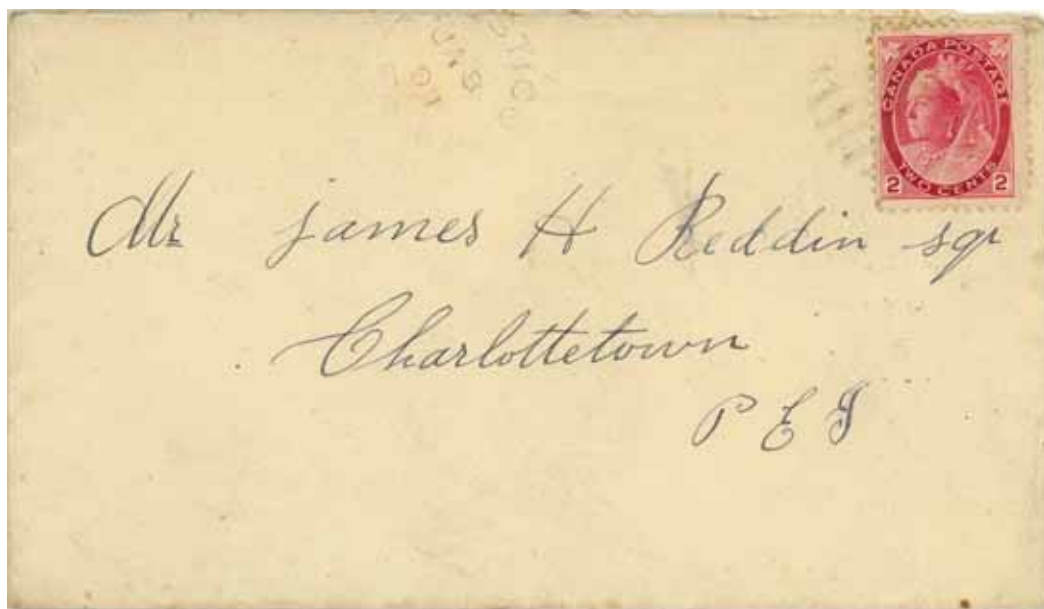 CANADA POSTAGE
TWO CENTS
2 2
Mr James H Reddin sqr
Charlottetown
P E I